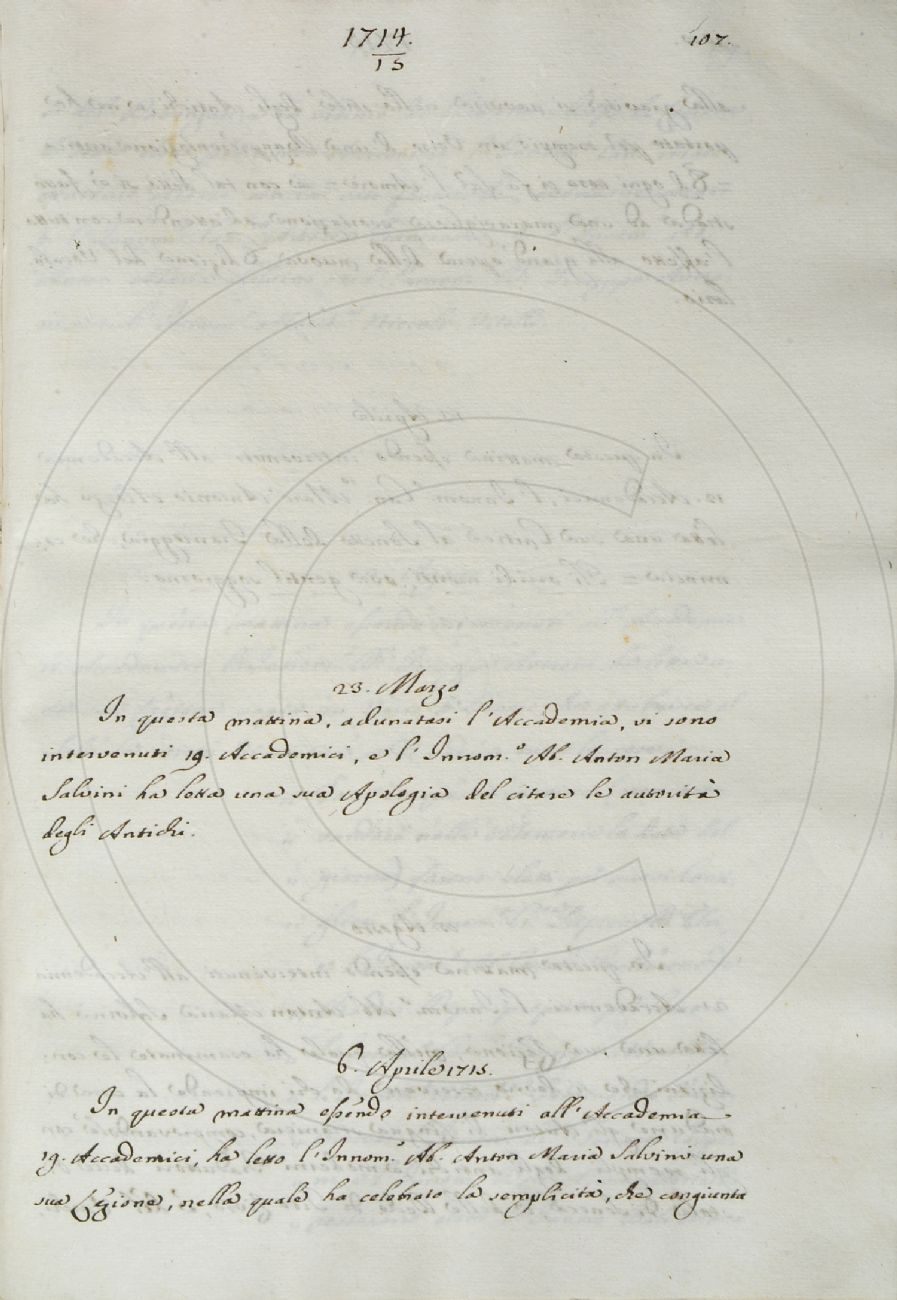 1714.
15
107.
23. Marzo
In questa mattina, adunatasi l'Accademia, vi sono
intervenuti 19. Accademici, e l'Innom.º Ab. Anton Maria
Salvini ha letta una sua Apologia del citare le autorità
degli Antichi.
6. Aprile 1715.
In questa mattina essendo intervenuti all'Accademia
19. Accademici, ha letto l'Innom.º Ab. Anton Maria Salvini una
sua Lezione, nella quale ha celebrato la semplicità, che congiunta